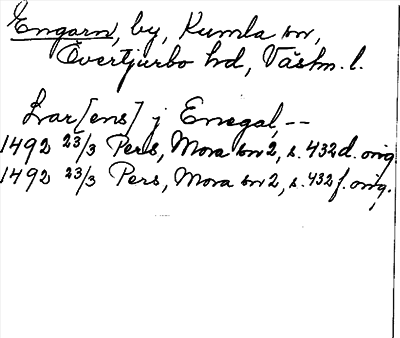 Engarn, by, Kumla sn,
Övertjurbo hd, Västm. l.
Lar[ens] j Enegal, --
1492 23/3 Pers, Mora sn 2, s. 432 d. orig.
1492 23/3 Pers, Mora sn 2, s. 432 f. orig.